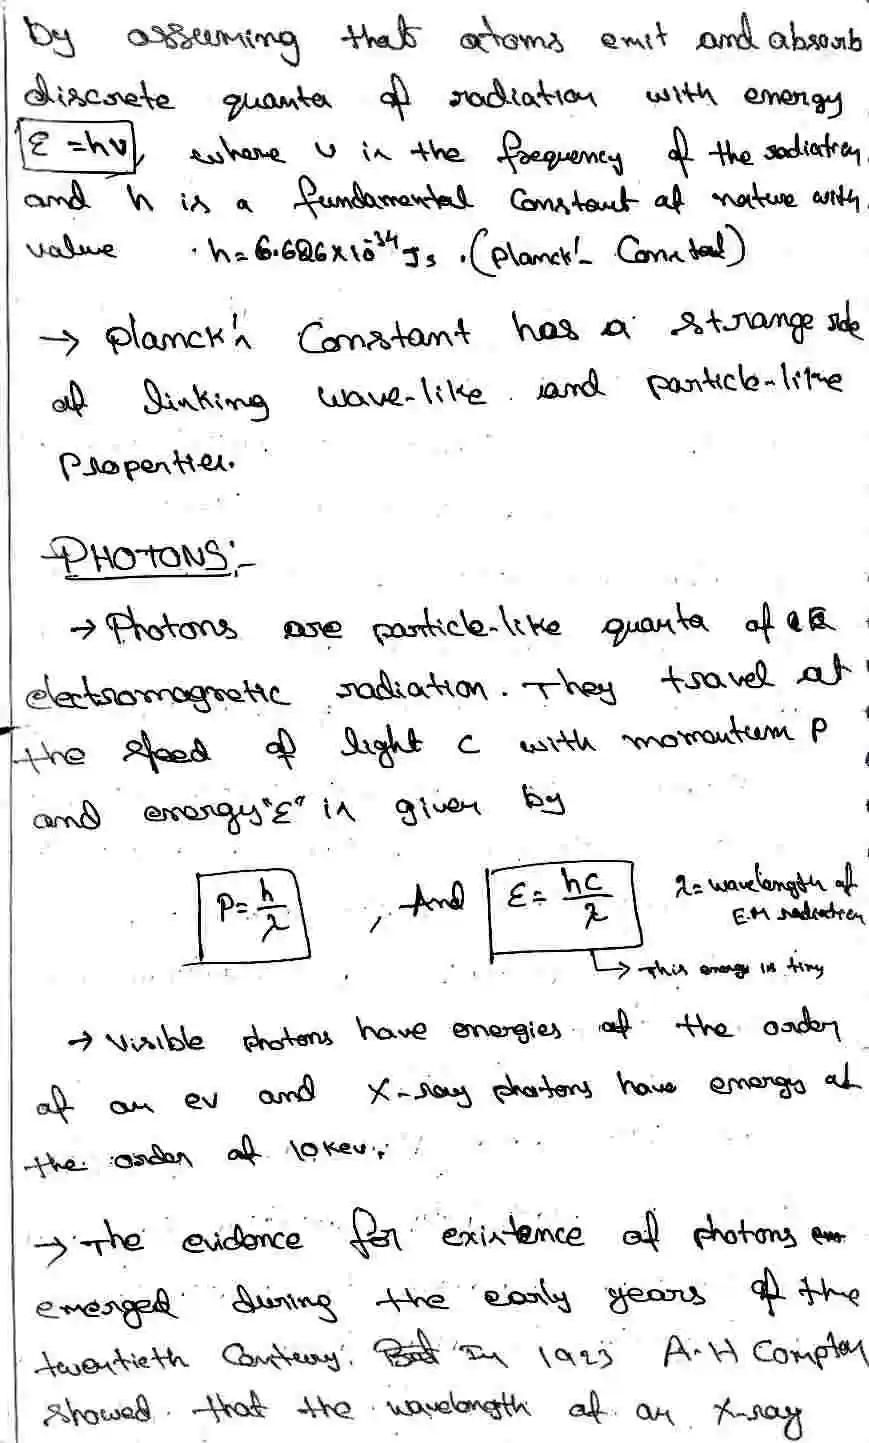 by assuming that atoms emit and absorb
discrete quanta of radiation with energy
ε = hν, where ν is the frequency of the radiation
and h is a fundamental constant of nature with
value h = 6.626×10⁻³⁴ Js. (Planck's Constant)
→ Planck's Constant has a strange side
of linking wave-like and particle-like
Properties.
PHOTONS:-
→ Photons are particle-like quanta of
electromagnetic radiation. They travel at
the speed of light c with momentum P
and energy "ε" is given by
P = h/λ , And ε = hc/λ λ = wavelength of
E.M radiation
↳ This energy is tiny
→ Visible photons have energies of the order
of an ev and X-ray photons have energy of
the order of 10 Kev.
→ The evidence for existence of photons
emerged during the early years of the
twentieth Century. In 1923 A.H Compton
showed that the wavelength of an X-ray